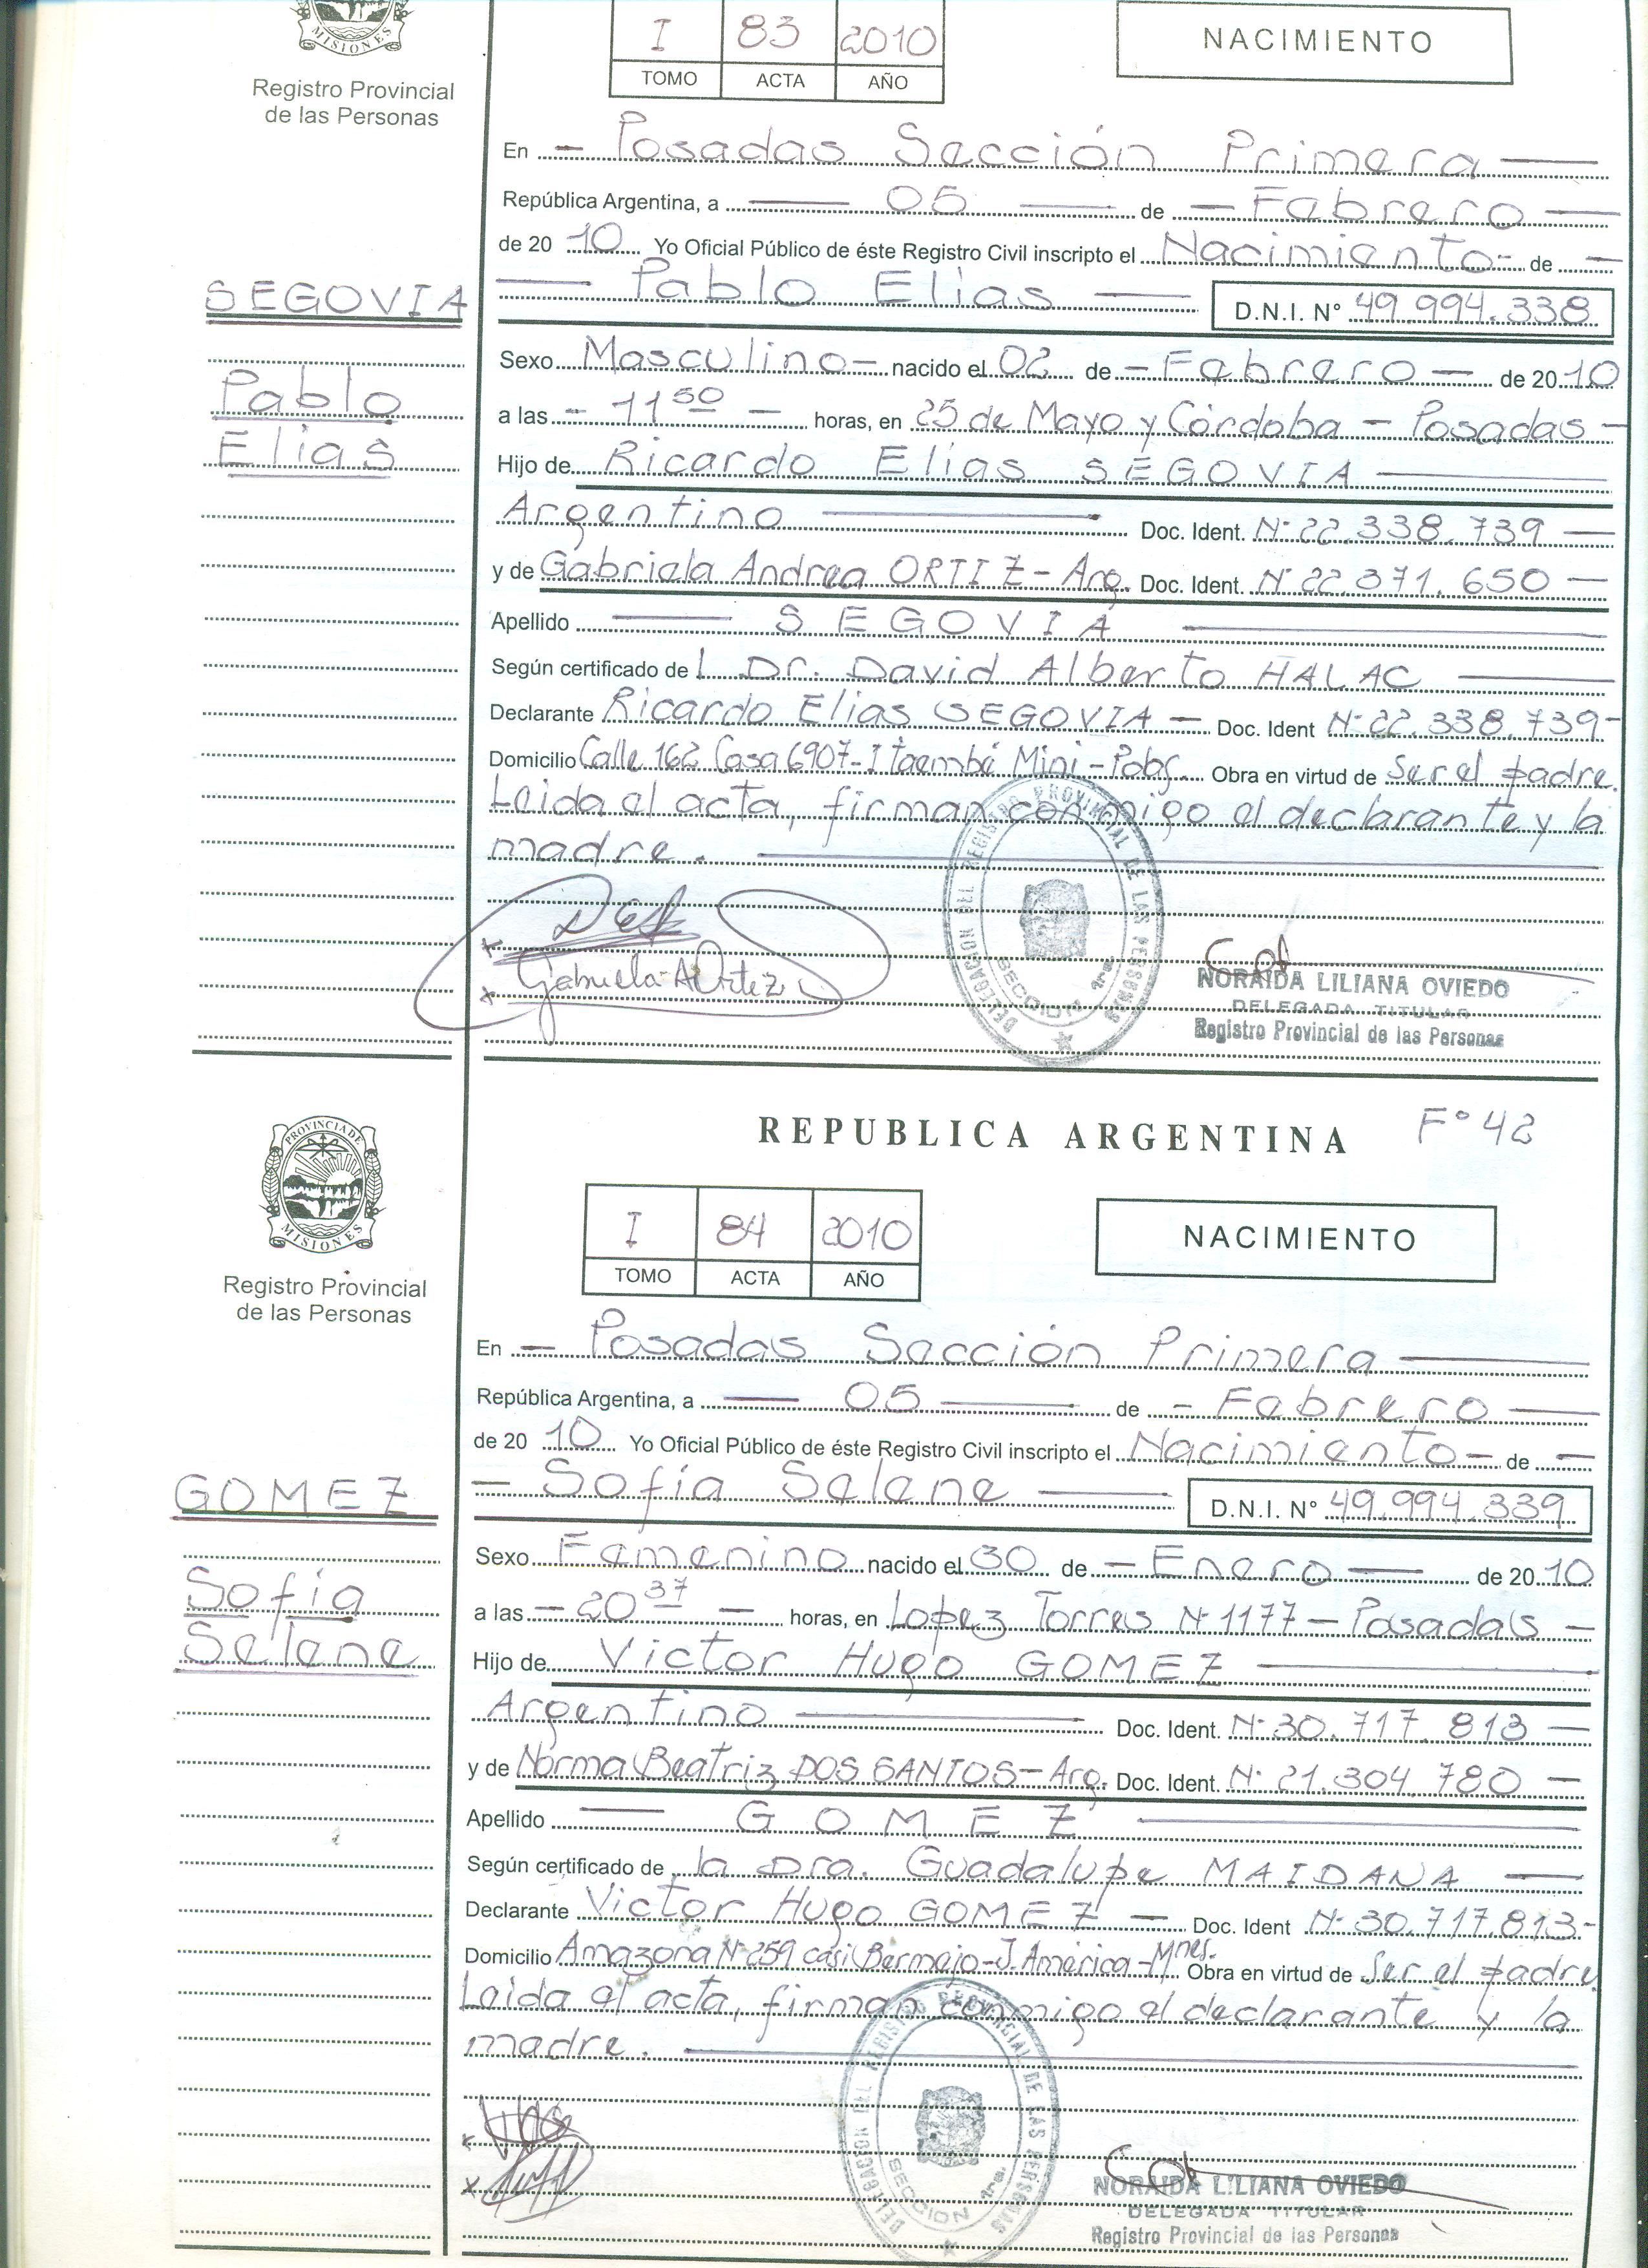 MISIONES
Registro Provincial
de las Personas
I 83 2010
TOMO ACTA AÑO
NACIMIENTO
En - Posadas Sección Primera
República Argentina, a 05 de - Febrero
de 20 10 Yo Oficial Público de éste Registro Civil inscripto el Nacimiento - de
SEGOVIA
Pablo Elias
D.N.I. N° 49.994.338
Pablo
Elias
Sexo Masculino - nacido el 02 de - Febrero - de 20 10
a las - 11 50 - horas, en 25 de Mayo y Córdoba - Posadas -
Hijo de Ricardo Elias SEGOVIA
Argentino Doc. Ident. N° 22.338.739
y de Gabriela Andrea ORTIZ - Arg. Doc. Ident. N° 22.371.650
Apellido SEGOVIA
Según certificado de l Dr. David Alberto HALAC
Declarante Ricardo Elias SEGOVIA - Doc. Ident N° 22.338.739-
Domicilio Calle 162 Casa 6907- Itaembé Mini - Pdas. Obra en virtud de Ser el padre.
Leida el acta, firman conmigo el declarante y la
madre.
Gabriela A Ortiz
DELEGACION DEL REGISTRO PROVINCIAL DE LAS PERSONAS
SECCION 1ra.
NORAIDA LILIANA OVIEDO
DELEGADA TITULAR
Registro Provincial de las Personas
REPUBLICA ARGENTINA
F° 42
PROVINCIA DE
MISIONES
Registro Provincial
de las Personas
I 84 2010
TOMO ACTA AÑO
NACIMIENTO
En - Posadas Sección Primera
República Argentina, a 05 de - Febrero
de 20 10 Yo Oficial Público de éste Registro Civil inscripto el Nacimiento - de -
GOMEZ
- Sofía Selene
D.N.I. N° 49.994.339
Sofía
Selene
Sexo Femenino nacido el 30 de - Enero - de 20 10
a las - 20 37 - horas, en Lopez Torres N° 1177 - Posadas -
Hijo de Victor Hugo GOMEZ
Argentino Doc. Ident. N° 30.717.813
y de Norma Beatriz DOS SANTOS - Arg. Doc. Ident. N° 21.304.780
Apellido GOMEZ
Según certificado de la Dra. Guadalupe MAIDANA
Declarante Victor Hugo GOMEZ - Doc. Ident N° 30.717.813-
Domicilio Amazona N° 259 casi Bermejo - J. América - Mnes. Obra en virtud de Ser el padre
Leida el acta, firman conmigo el declarante y la
madre.
DELEGACION DEL REGISTRO PROVINCIAL DE LAS PERSONAS
SECCION 1ra.
NORAIDA LILIANA OVIEDO
DELEGADA TITULAR
Registro Provincial de las Personas